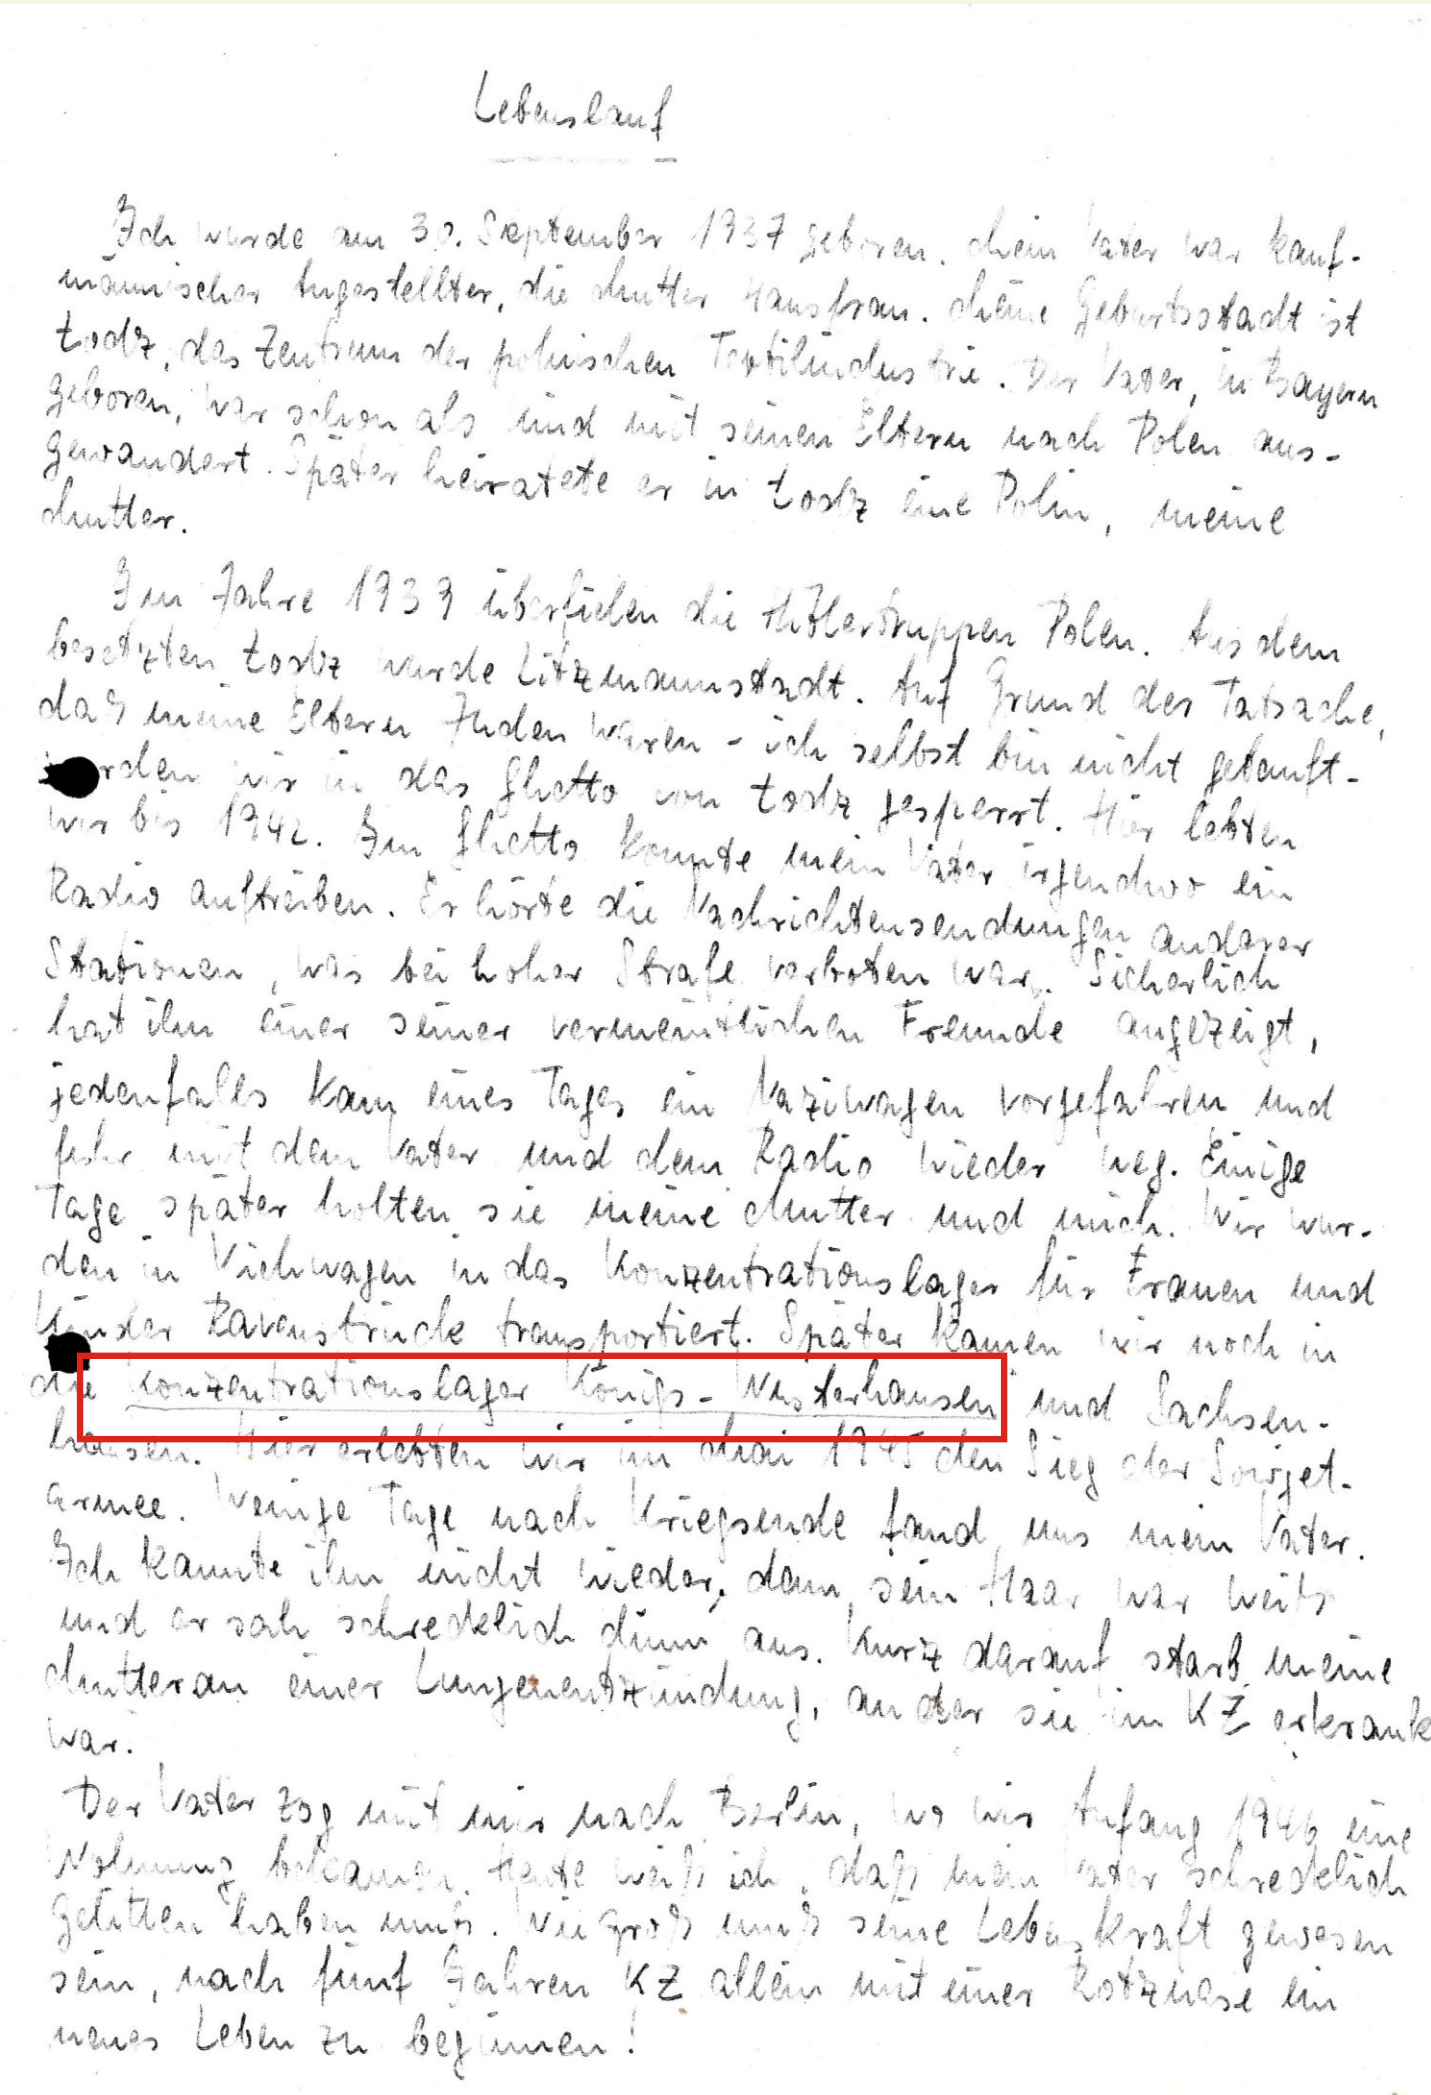 Lebenslauf
Ich wurde am 30. September 1937 geboren. Mein Vater war kauf-
männischer Angestellter, die Mutter Hausfrau. Meine Geburtsstadt ist
Łodz, das Zentrum der polnischen Textilindustrie. Der Vater, in Bayern
geboren, war schon als Kind mit seinen Eltern nach Polen aus-
gewandert. Später heiratete er in Łodz eine Polin, meine
Mutter.
Im Jahre 1939 überfielen die Hitlertruppen Polen. Aus dem
besetzten Łodz wurde Litzmannstadt. Auf Grund der Tatsache,
daß meine Eltern Juden waren - ich selbst bin nicht getauft -
wurden wir in das Ghetto von Łodz gesperrt. Hier lebten
wir bis 1942. Im Ghetto konnte mein Vater irgendwo ein
Radio auftreiben. Er hörte die Nachrichtensendungen anderer
Stationen, was bei hoher Strafe verboten war. Sicherlich
hat ihn einer seiner vermeintlichen Freunde angezeigt,
jedenfalls kam eines Tages ein Naziwagen vorgefahren und
fuhr mit dem Vater und dem Radio wieder weg. Einige
Tage später holten sie meine Mutter und mich. Wir wur-
den in Viehwagen in das Konzentrationslager für Frauen und
Kinder Ravensbrück transportiert. Später kamen wir noch in
die Konzentrationslager Königs-Wusterhausen und Sachsen-
hausen. Hier erlebten wir im Mai 1945 den Sieg der Sowjet-
armee. Wenige Tage nach Kriegsende fand uns mein Vater.
Ich kannte ihn nicht wieder, denn sein Haar war weiß
und er sah schrecklich dünn aus. Kurz darauf starb meine
Mutter an einer Lungenentzündung, an der sie im KZ erkrank
war.
Der Vater zog mit mir nach Berlin, wo wir Anfang 1946 eine
Wohnung bekamen. Heute weiß ich, daß mein Vater schrecklich
gelitten haben muß. Wie groß muß seine Lebenskraft gewesen
sein, nach fünf Jahren KZ allein mit einer Rotznase ein
neues Leben zu beginnen!